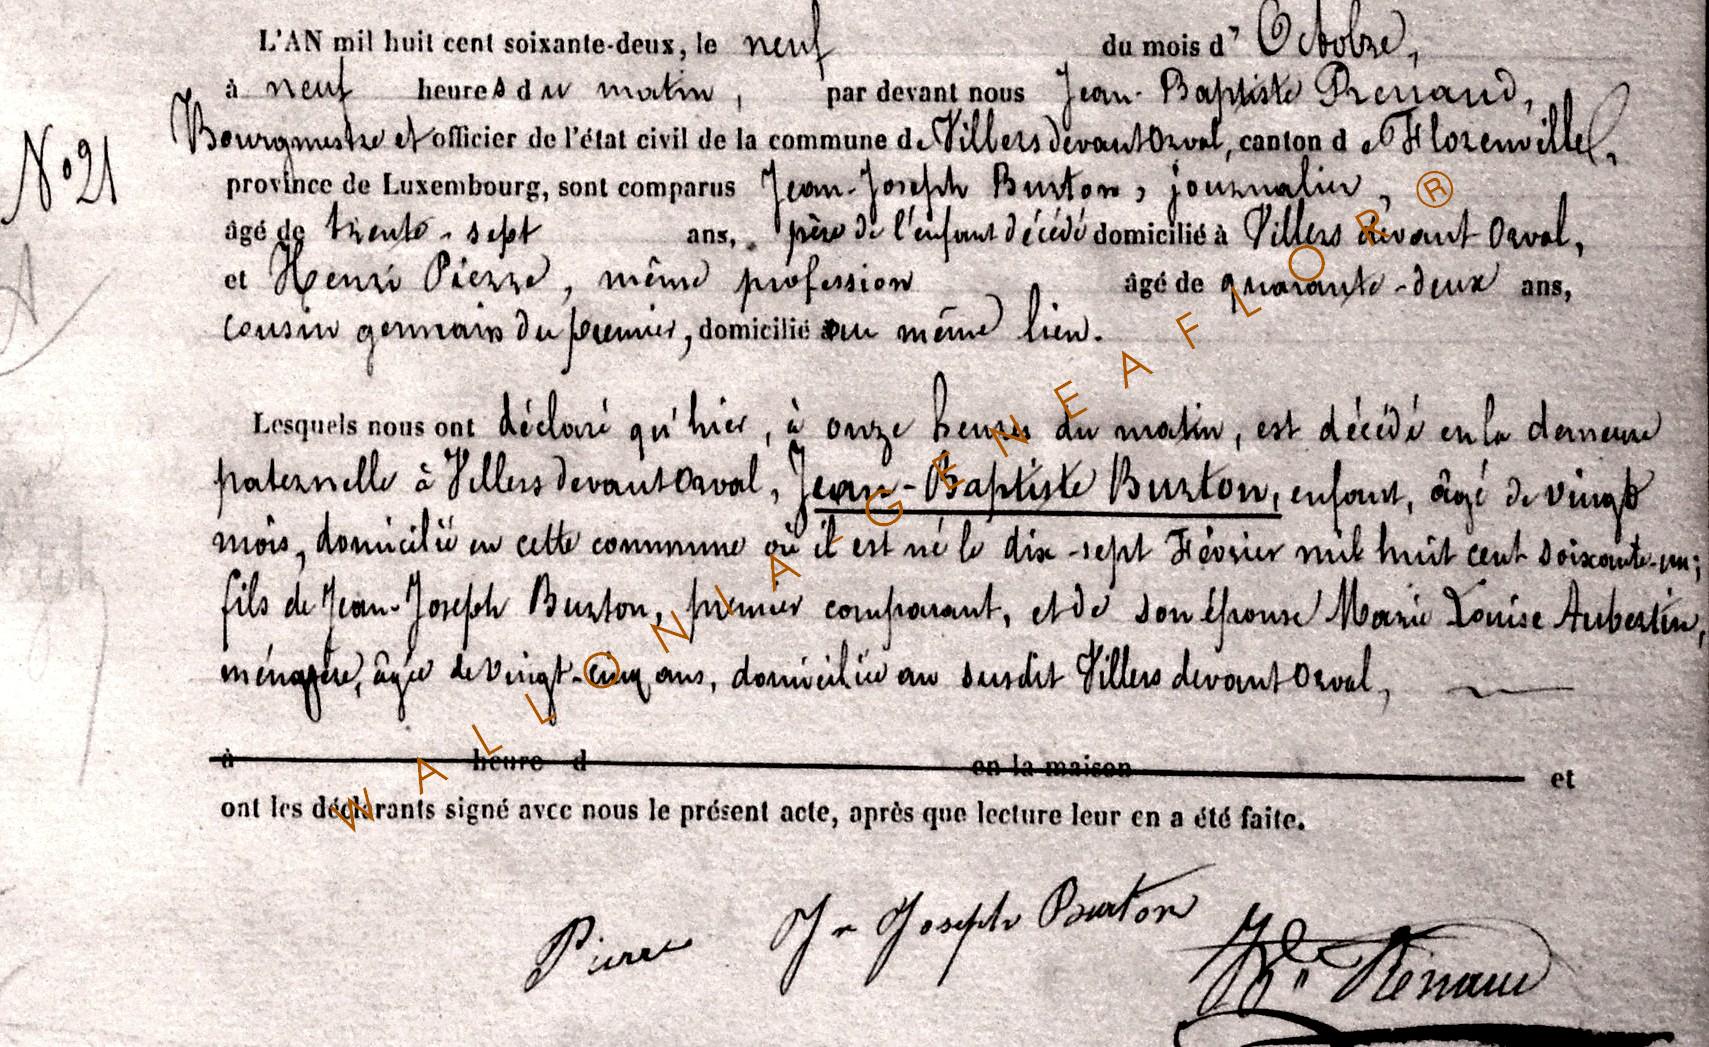 L'AN mil huit cent soixante-deux, le neuf du mois d' Octobre,
à neuf heures du matin, par devant nous Jean-Baptiste Renaud,
Bourgmestre et officier de l'état civil de la commune de Villers devant Orval, canton de Florenville,
N° 21
province de Luxembourg, sont comparus Jean-Joseph Burton, journalier,
âgé de trente-sept ans, père de l'enfant décédé domicilié à Villers devant Orval,
et Henri Pierre, même profession âgé de quarante-deux ans,
cousin germain du premier, domicilié au même lieu.
Lesquels nous ont déclaré qu'hier, à onze heures du matin, est décédé en la demeure
paternelle à Villers devant Orval, Jean-Baptiste Burton, enfant, âgé de vingt
mois, domicilié en cette commune où il est né le dix-sept Février mil huit cent soixante-un;
fils de Jean-Joseph Burton, premier comparant, et de son épouse Marie Louise Aubertin,
ménagère, âgée de vingt-cinq ans, domiciliée au susdit Villers devant Orval,
à heure d en la maison et
ont les déclarants signé avec nous le présent acte, après que lecture leur en a été faite.
Pierre Jn Joseph Burton
Renaud
WALLONIA-GENEAFLOR®